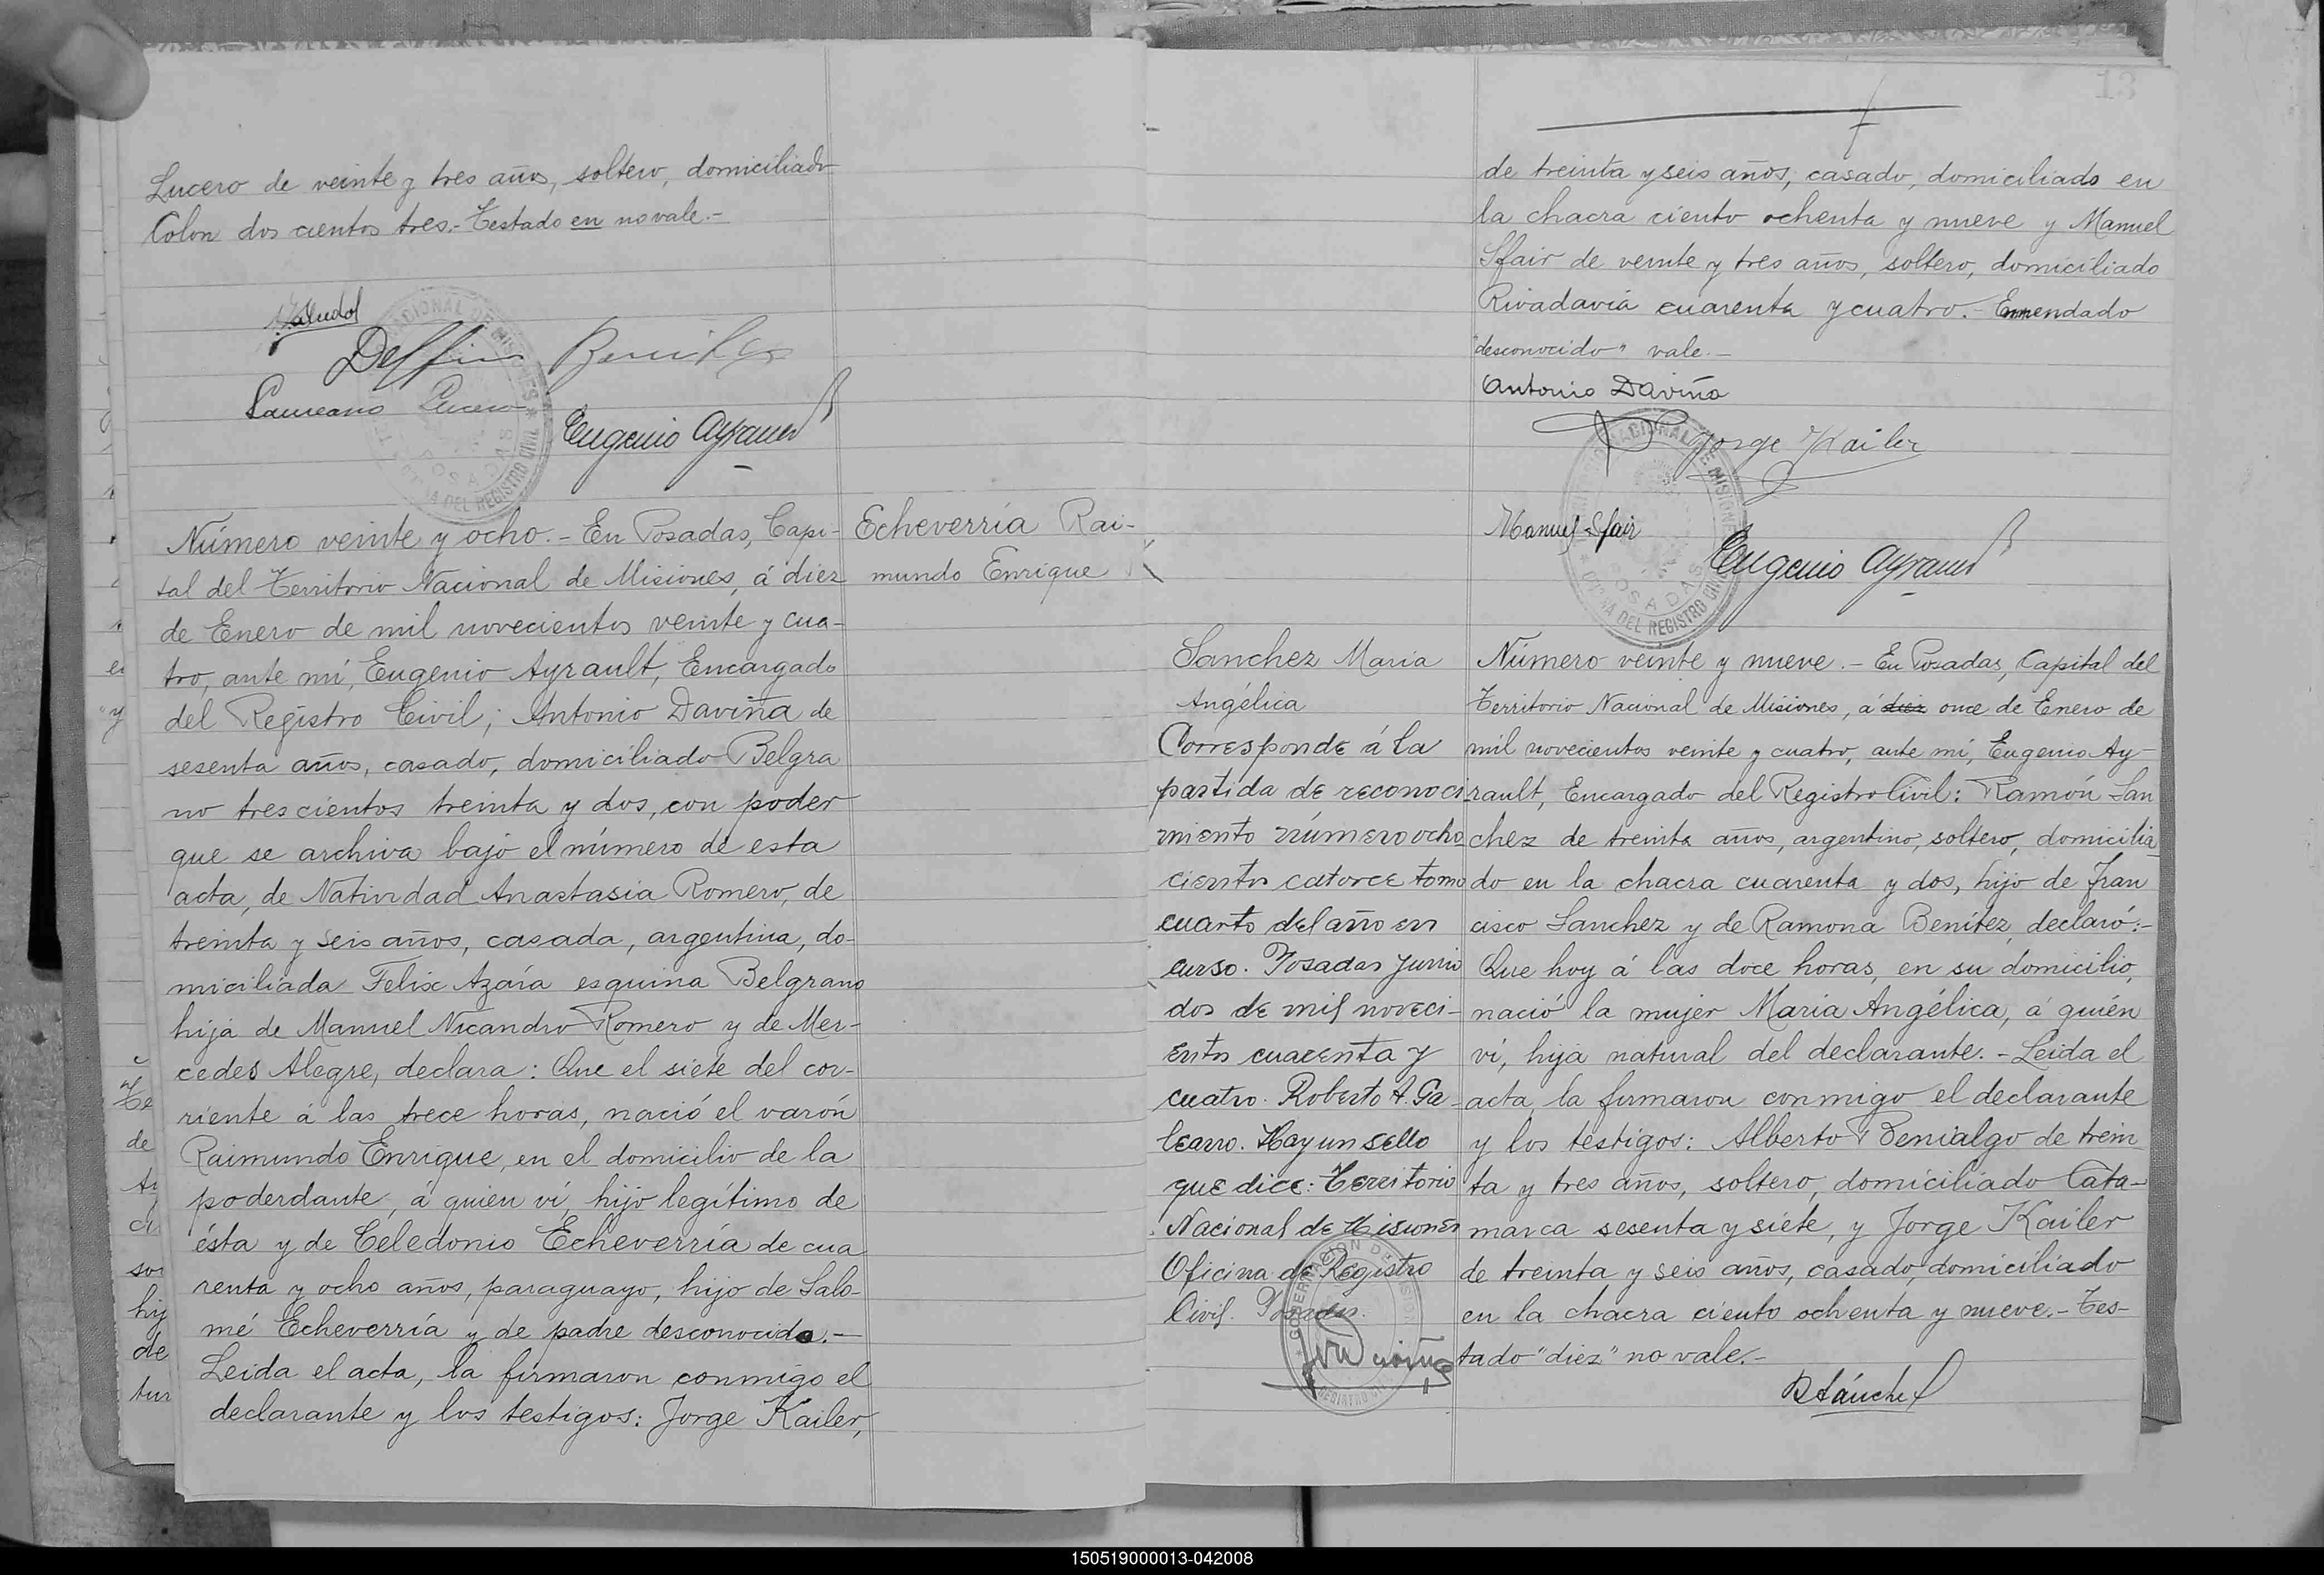 Lucero de veinte y tres años, soltero, domiciliado
Colon dos cientos tres.- Testado en no vale.-
Delfin Benitez
Laureano Lucero
Eugenio Ayrault
Número veinte y ocho.- En Posadas, Capi-
tal del Territorio Nacional de Misiones, á diez
de Enero de mil novecientos veinte y cua-
tro, ante mí, Eugenio Ayrault, Encargado
del Registro Civil; Antonio Daviña de
sesenta años, casado, domiciliado Belgra
no trescientos treinta y dos, con poder
que se archiva bajo el número de esta
acta, de Natividad Anastasia Romero, de
treinta y seis años, casada, argentina, do-
miciliada Felix Azaía esquina Belgrano
hija de Manuel Nicandro Romero y de Mer-
cedes Alegre, declara: Que el siete del cor-
riente á las trece horas, nació el varón
Raimundo Enrique, en el domicilio de la
poderdante, á quien ví, hijo legítimo de
ésta y de Celedonio Echeverría de cua
renta y ocho años, paraguayo, hijo de Salo-
mé Echeverría y de padre desconocido.-
Leida el acta, la firmaron conmigo el
declarante y los testigos: Jorge Kailer,
Echeverría Rai-
mundo Enrique
13
de treinta y seis años, casado, domiciliado en
la chacra ciento ochenta y nueve y Manuel
Sfair de veinte y tres años, soltero, domiciliado
Rivadavia cuarenta y cuatro.- Enmendado
"desconocido" vale.-
Antonio Daviña
Jorge Kailer
Manuel Sfair
Eugenio Ayrault
Sanchez María
Angélica
Corresponde á la
partida de reconoci-
miento número ocho
cientos catorce tomo
cuarto del año en
curso. Posadas Junio
dos de mil noveci-
entos cuarenta y
cuatro. Roberto A. Ga-
learro. Hay un sello
que dice: Territorio
Nacional de Misiones
Oficina de Registro
Civil. Posadas.
Número veinte y nueve.- En Posadas, Capital del
Territorio Nacional de Misiones, á diez once de Enero de
mil novecientos veinte y cuatro, ante mí, Eugenio Ay-
rault, Encargado del Registro Civil: Ramón San
chez de treinta años, argentino, soltero, domicilia
do en la chacra cuarenta y dos, hijo de Fran
cisco Sanchez y de Ramona Benítez, declaró:-
Que hoy á las doce horas, en su domicilio,
nació la mujer María Angélica, á quién
ví, hija natural del declarante.- Leida el
acta la firmaron conmigo el declarante
y los testigos: Alberto Benialgo de trein
ta y tres años, soltero, domiciliado Cata-
marca sesenta y siete, y Jorge Kailer
de treinta y seis años, casado, domiciliado
en la chacra ciento ochenta y nueve.- Tes-
tado "diez" no vale.-
R Sánchez
150519000013-042008